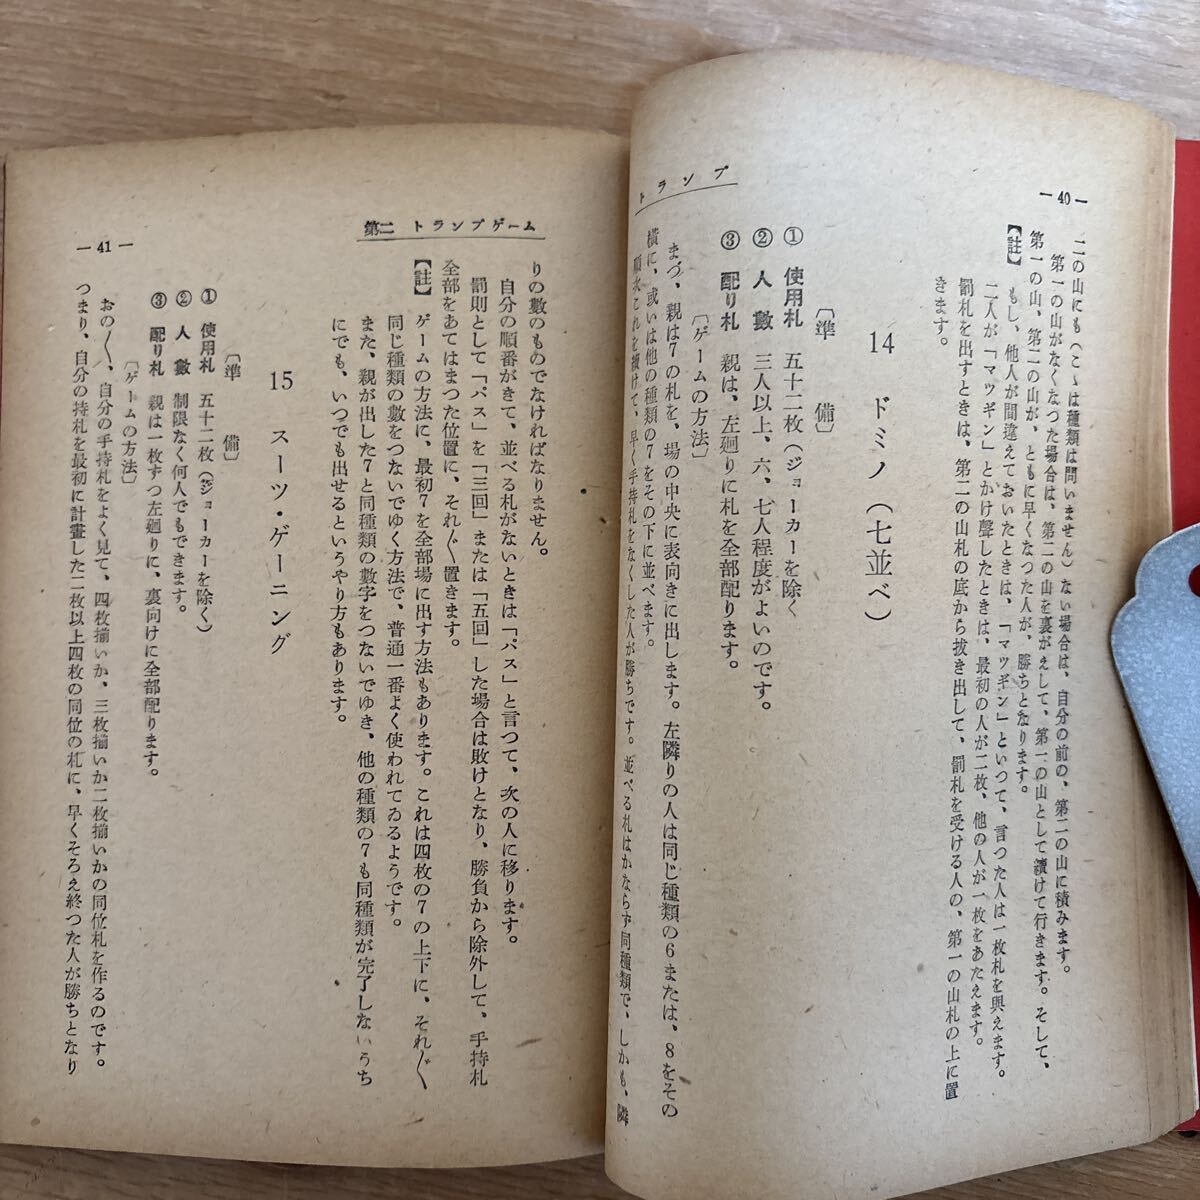 トランプ
— 40 —
二の山にも(こゝは種類は問いません)ない場合は、自分の前の、第二の山に積みます。
第一の山がなくなつた場合は、第二の山を裏がえして、第一の山として續けて行きます。そして、
第一の山、第二の山が、ともに早くなつた人が、勝ちとなります。
【註】 もし、他人が間違えておいたときは、「マツギン」といつて、言つた人は一枚札を與えます。
二人が「マツギン」とかけ聲したときは、最初の人が二枚、他の人が一枚をあたえます。
罰札を出すときは、第二の山札の底から抜き出して、罰札を受ける人の、第一の山札の上に置
きます。
14 ドミノ(七並べ)
〔準 備〕
① 使用札 五十二枚(ジョーカーを除く
② 人 數 三人以上、六、七人程度がよいのです。
③ 配り札 親は、左廻りに札を全部配ります。
〔ゲームの方法〕
まづ、親は7の札を、場の中央に表向きに出します。左隣りの人は同じ種類の6または、8をその
橫に、或いは他の種類の7をその下に並べます。
順次これを續けて、早く手持札をなくした人が勝ちです。並べる札はかならず同種類で、しかも、隣
第二 トランプゲーム
— 41 —
りの數のものでなければなりません。
自分の順番がきて、並べる札がないときは「パス」と言つて、次の人に移ります。
罰則として「パス」を「三回」または「五回」した場合は敗けとなり、勝負から除外して、手持札
全部をあてはまつた位置に、それ〴〵置きます。
【註】 ゲームの方法に、最初7を全部場に出す方法もあります。これは四枚の7の上下に、それ〴〵
同じ種類の數をつないでゆく方法で、普通一番よく使われてゐるようです。
また、親が出した7と同種類の數字をつないでゆき、他の種類の7も同種類が完了しないうち
にでも、いつでも出せるというやり方もあります。
15 スーツ・ゲーニング
〔準 備〕
① 使用札 五十二枚(ジョーカーを除く)
② 人 數 制限なく何人でもできます。
③ 配り札 親は一枚ずつ左廻りに、裏向けに全部配ります。
〔ゲームの方法〕
おの〳〵、自分の手持札をよく見て、四枚揃いか、三枚揃いか二枚揃いかの同位札を作るのです。
つまり、自分の持札を最初に計畫した二枚以上四枚の同位の札に、早くそろえ終つた人が勝ちとなり